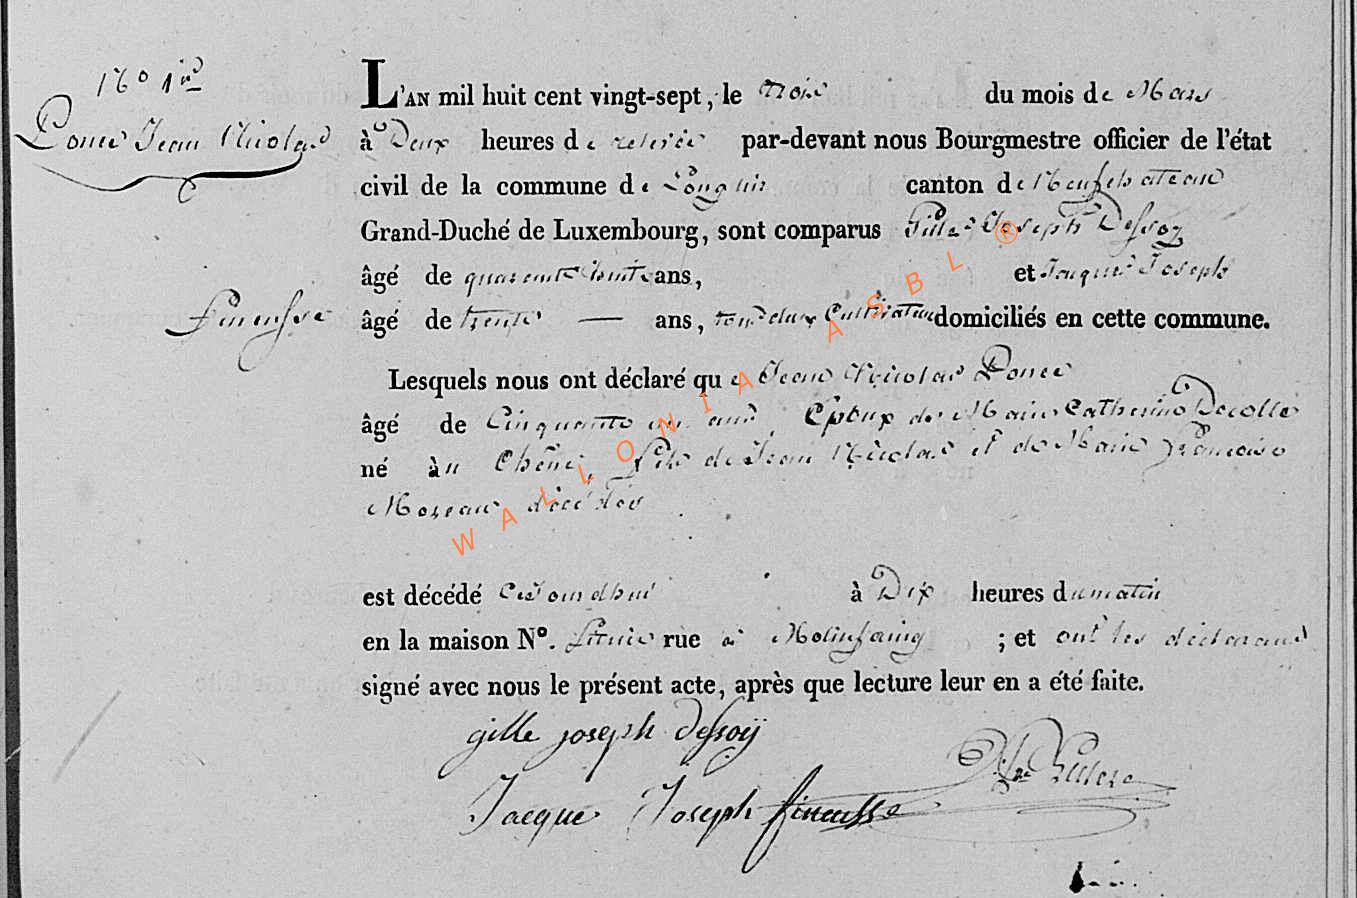 16° 1er
Ponce Jean Nicolas
L'AN mil huit cent vingt-sept, le trois du mois de Mars
à Deux heures de relevée par-devant nous Bourgmestre officier de l'état
civil de la commune de Longlier canton de Neufchateau
Grand-Duché de Luxembourg, sont comparus Gille Joseph Dessoy
âgé de quarente huite ans, et Jaque Joseph
Fineusse
âgé de trente — ans, tous deux Cultivateur domiciliés en cette commune.
Lesquels nous ont déclaré que Jean Nicolas Ponce
âgé de Cinquante un ans, Epoux de Marie Catherine Decolle
né à u Chêne, fils de Jean Nicolas et de Marie Françoise
Moreau décédés
est décédé Cejourdhui à Dix heures du matin
en la maison N°. rue à Molinfaing ; et ont les déclarans
signé avec nous le présent acte, après que lecture leur en a été faite.
gille joseph dessoÿ
Jacque Joseph fineusse
WALLONIA ASBL ®